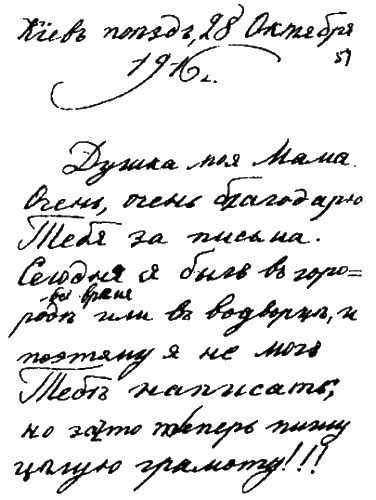 Кіевъ поѣздъ, 28 Октября
51
1916 г.
Душка моя Мама.
Очень, очень благодарю
Тебя за письма.
Сегодня я былъ въ горо=
все время
родѣ или въ водворцѣ, и
поэтяму я не могъ
Тебѣ написать,
но зато теперь пишу
цѣлую грамоту!!!